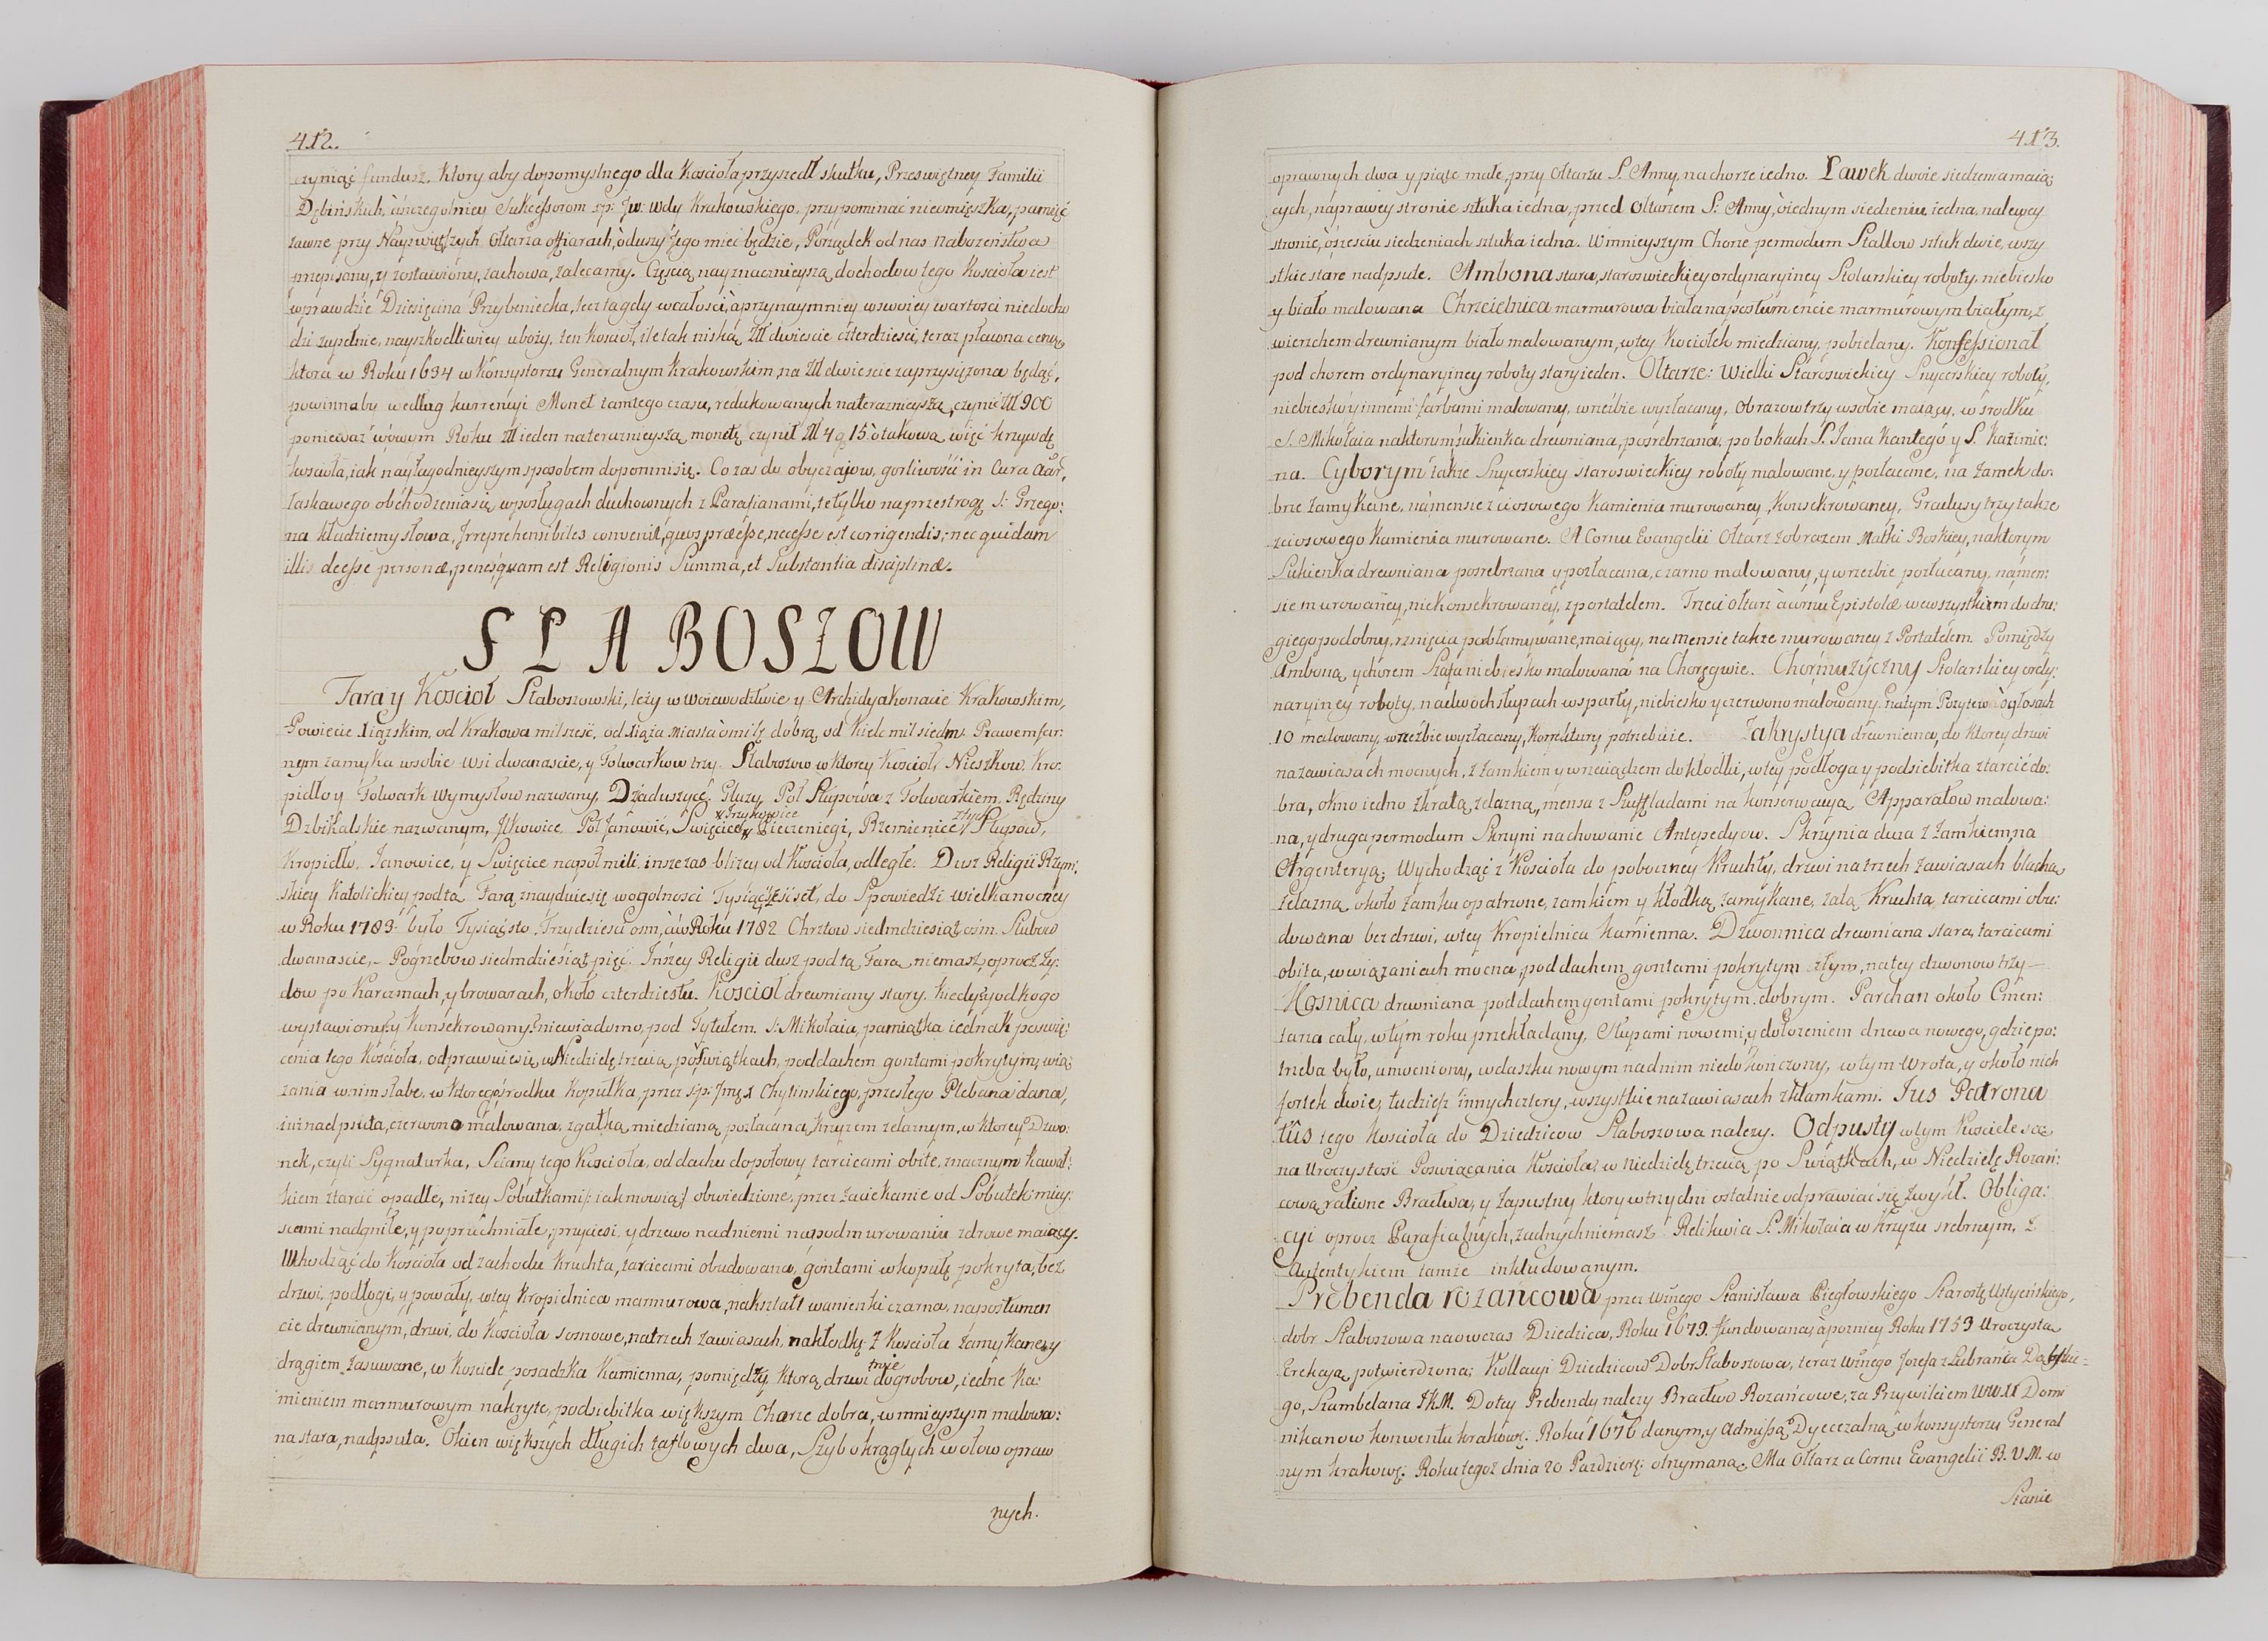 412.
czyniąc fundusz. Ktory aby dopomyslnego dla Koscioła przyszedł skutku, Przeswiętney Familii
Dębińskich, àszczegolniey Sukcessorom sp: Jw: Wdy Krakowskiego, przypominać nieomięszka, pamięć
zawne przy Naywyższych Ołtarza offiarach, ò duszy Jego mieć będzie, Porządek od nas Nabożeństwa
przepisany, y zostawiony, zachowa, zalecamy. Częscią nayznacznieyszą dochodow tego Koscioła iest
wprawdzie Dziesięcina Przybeniecka, lecz ta gdy wcałosci, à przynaymniey wswoiey wartosci niedocho
dzi zupełnie, nayszkodliwiey uboży, ten Koscioł, ile tak niską Złł dwiescie czterdziesci, teraz płacona ceną,
ktora w Roku 1634 w Konsystorzu Generalnym Krakowskim, na Złł dwiescie zaprzysiężona będąc,
powinnaby według kurrencyi Monet tamtego czasu, redukowanych na teraznieyszą, czynić Złł 900
ponieważ wowym Roku Złł ieden na teraznieyszą monetę czynił Złł 4 g 15. ò takową więc krzywdę
koscioła, iak nayłagodnieyszym sposobem dopomnisię. Co zas do obyczaiow, gorliwości in Cura Aãr,
łaskawego obchodzenia się wposługach duchownych z Parafianami, te tylko na przestrogę S: Grzego:
rza kładziemy słowa, Irreprehensibiles convenit, quos præesse, necesse est corrigendis, nec quidam
illis deesse personæ, penes quam est Religionis Summa, et Substantia disciplinæ.
SŁABOSZOW
Fara y Koscioł Słaboszowski, leży w Woiewodztwie y Archidyakonacie Krakowskim,
Powiecie Xiązskim, od Krakowa mil szesć, od Xiąża Miasta òmilę dobrą, od Kielc mil siedm. Prawem far:
nym zamyka wsobie Wsi dwanascie, y Folwarkow trzy. Słaboszow w ktorey Koscioł, Nieszkow, Kro:
pidło y Folwark Wymysłow nazwany, Dziaduszyce, Gluzy, Poł Słupowa z Folwarkiem, Rędziny
Dzbikalskie nazwanym, Ilkowice, Poł Janowic, Swięcice, x Jrzykowice x Pieczeniegi, Brzemienice złych Słupow,
Kropidło, Janowice, y Swięcice na poł mili, insze zas bliżey od Koscioła, odległe. Dusz Religii Rzym:
skiey Katolickiey podtą Farą znayduie się wogolnosci Tysiąc szescset, do Spowiedzi wielkanocney
w Roku 1783. było Tysiąc sto Trzydziesci osm, à w Roku 1782 Chrztow siedmdziesiąt osm. Slubow
dwanascie, Pogrzebow siedmdziesiąt pięć. Inszey Religii dusz podtą Farą niemasz, oprocz Ży:
dow po Karczmach, y browarach, około czterdziestu. Koscioł drewniany stary, Kiedy y od kogo
wystawiony, y Konsekrowany, niewiadomo, pod Tytułem S: Mikołaia, pamiątka iednak poswię:
cenia tego Koscioła, odprawuie się, w Niedzielę trzecią po Swiątkach, pod dachem gontami pokrytym, wią:
zania w nim słabe, w ktorego środku Kopułka, przez s:p: Jmę X Chylinskiego, przeszłego Plebana dana,
iuż nadpsuta, czerwono malowana, z gałką miedzianą, pozłacana, Krzyżem żelaznym, w ktorey Dzwo:
nek, czyli Sygnaturka, Sciany tego Koscioła, od dachu do połowy tarcicami obite, znacznym kawał:
kiem ztarcic opadłe, niżey Sobutkami: iak mowią: obwiedzione, przez zaciekanie od Sobutek miey:
scami nadgniłe, y popruchniałe, przyciesi, y drzewo nad niemi na podmurowaniu zdrowe maiący.
Wchodząc do Koscioła od zachodu Kruchta, tarcicami obudowana, gontami wkopułę pokryta, bez
drzwi, podłogi, y powały, wtey Kropielnica marmurowa, nakształt wanienki czarna, na postumen
cie drewnianym, drzwi, do Koscioła sosnowe, na trzech zawiasach, na kłodkę z Koscioła zamykane, y
drągiem zasuwane, w Kosciele posadzka Kamienna, pomiędzy ktorą drzwi troie do grobow, iedne Ka:
mieniem marmurowym nakryte, podsiebitka większym Chorze dobra, w mnieyszym malowa:
na stara, nadpsuta. Okien większych długich taflowych dwa, Szyb okrągłych wołow opraw
nych.
413.
oprawnych dwa y piąte małe, przy Ołtarzu S. Anny, na chorze iedno. Ławek dwoie siedzenia maią:
cych, na prawey stronie sztuka iedna, przed Ołtarzem S: Anny, ò iednym siedzeniu iedna, na lewey
stronie, ò szesciu siedzeniach sztuka iedna. W mnieyszym Chorze permodum Stallow sztuk dwie, wszy
stkie stare nadpsute. Ambona stara, staroswieckiey ordynaryiney Stolarskiey roboty, niebiesko
y biało malowana Chrzcielnica marmurowa biała na postumencie marmurowym białym, z
wierzchem drewnianym biało malowanym, wtey Kociołek miedziany, pobielany. Konfessionał
pod chorem ordynaryiney roboty stary ieden. Ołtarze: Wielki Staroswieckiey Snycerskiey roboty,
niebiesko y innemi farbami malowany, w rzeźbie wyzłacany, Obrazow trzy wsobie maiący, w srodku
S. Mikołaia na ktorym sukienka drewniana, posrebrzana, po bokach S. Jana Kantego y S. Kazimie:
rza. Cyborym także Snycerskiey staroswieckiey roboty malowane, y pozłacane, na zamek do:
brze zamykane, na mensie z ciosowego Kamienia murowaney, Konsekrowaney, Gradusy trzy także
z ciosowego Kamienia murowane. A Cornu Evangelii Ołtarz z obrazem Matki Boskiey, na ktorym
Sukienka drewniana posrebrzana y pozłacana, czarno malowany, y w rzeźbie pozłacany, na men:
sie murowaney, niekonsekrowaney, z portatelem. Trzeci ołtarz à cornu Epistolæ wewszystkiem do dru:
giego podobny, rznięcia poobłamywane, maiący, na mensie także murowaney z Portatelem. Pomiędzy
Amboną, y chorem Szafa niebiesko malowana na Chorągwie. Chor muzyczny Stolarskiey ordy:
naryiney roboty, na dwoch słupach wsparty, niebiesko y czerwono malowany. na tym Pozytew ò głosach
10 malowany, w rzeźbie wyzłacany, Korrektury potrzebuie. Zakrystya drewniana, do ktorey drzwi
na zawiasach mocnych, z zamkiem y wrzeciądzem do kłodki, w tey podłoga y podsiebitka z tarcic do:
bra, okno iedno z kratą żelazną, mensa z Szufladami na konserwacyą Apparatow malowa:
na, y druga permodum Skrzyni na chowanie Antepedyow. Skrzynia duża z zamkiem, na
Argenteryą. Wychodząc z Koscioła do poboczney Kruchty, drzwi na trzech zawiasach blachą
żelazną około zamku opatrzone, zamkiem y kłodką zamykane, zatą Kruchta, tarcicami obu:
dowana bez drzwi, w tey Kropielnica kamienna. Dzwonnica drewniana stara, tarcicami
obita, w wiązaniach mocna, pod dachem gontami pokrytym złym, na tey dzwonow trzy
Kosnica drewniana pod dachem gontami pokrytym dobrym. Parchan około Cmen:
tarza cały, w tym roku przekładany, Słupami nowemi, y dołożeniem drzewa nowego, gdzie po:
trzeba było, umocniony, w daszku nowym nad nim niedokończony, w tym Wrota, y około nich
fortek dwie, tudzież innych cztery, wszystkie na zawiasach z klamkami. Jus Patrona
tûs tego Koscioła do Dziedzicow Słaboszowa należy. Odpusty w tym Kosciele są:
na Uroczystosć Poswiącania Koscioła w niedzielę trzecią po Swiątkach, w Niedzielę Rożań:
cową ratione Bractwa, y Zapustny ktory w trzy dni ostatnie odprawiać się zwykł. Obliga:
cyi oprocz Parafialnych, żadnych niemasz. Relikwia S. Mikołaia w Krzyżu srebrnym, z
Autentykiem tamże inkludowanym.
Prebenda rożańcowa przez Wżnego Stanisława Biegłowskiego Starostę Uszyckiego,
dobr Słaboszowa naowczas Dziedzica, Roku 1679. fundowana, à pozniey Roku 1753 Uroczystą
Erekcyą potwierdzona; Kollacyi Dziedzicow Dobr Słaboszowa, teraz Wżnego Jozefa z Lubrania Dąbskie=
go, Szambelana J.K.M. Do tey Prebendy należy Bractwo Rożańcowe, za Przywileiem WW.XX Domi
nikanow konwentu krakowẽ: Roku 1676 danym, y Admissą Dyecezalną, w konsystorzu General
nym krakowẽ: Roku tegoż dnia 20 Pazdzierẽ: otrzymaną. Ma Ołtarz a Cornu Evangelii B.V.M. w
Stanie